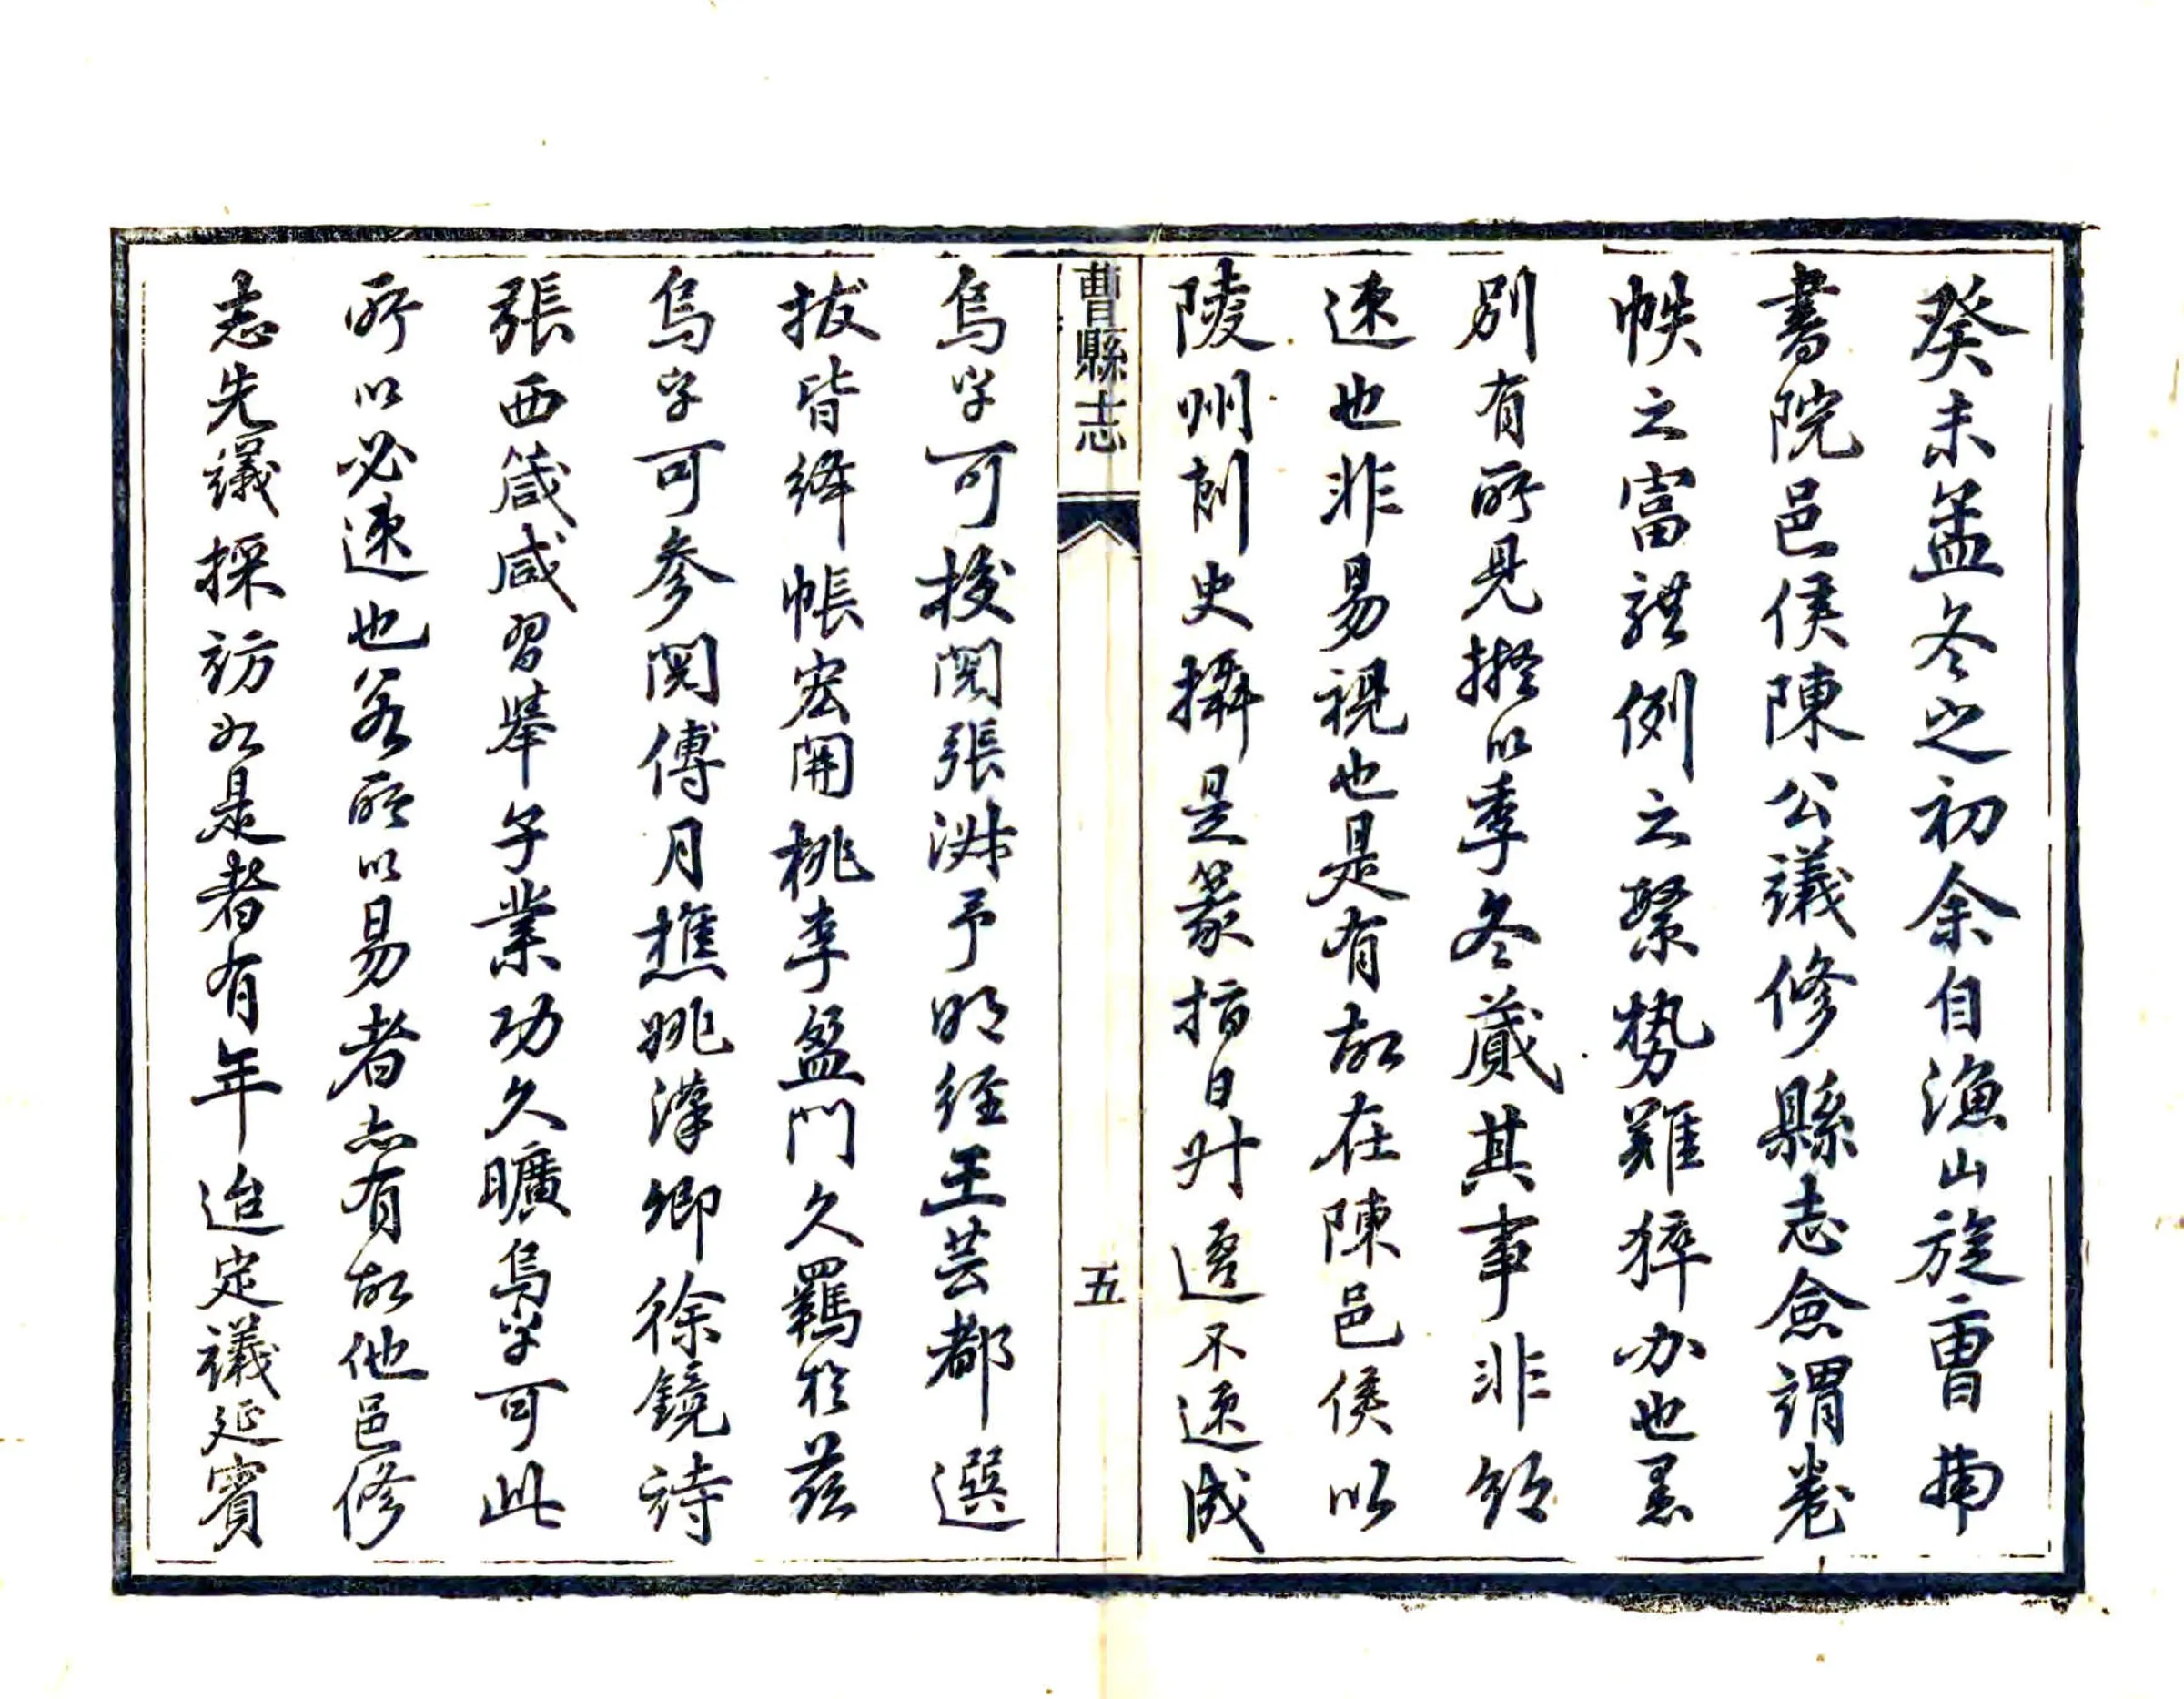 癸未孟冬之初余自漁山旋曹南
書院邑侯陳公議修縣志僉謂卷
帙之富體例之繁勢難猝办也君
別有所見擬以季冬蕆其事非欲
速也非易視也是有故在陳邑侯以
陵州刺史攝是篆指日叶遷不速成
曹縣志
五
烏乎可援閱張淑予明經王芸都選
拔皆絳帳宏開桃李盈門久羈於茲
烏乎可參閱傅月樵姚漢卿徐鏡詩
張西箴咸習舉子業功久曠烏乎可此
所以必速也若所以易者亦有故他邑修
志先議採訪如是者有年迨定議延賓